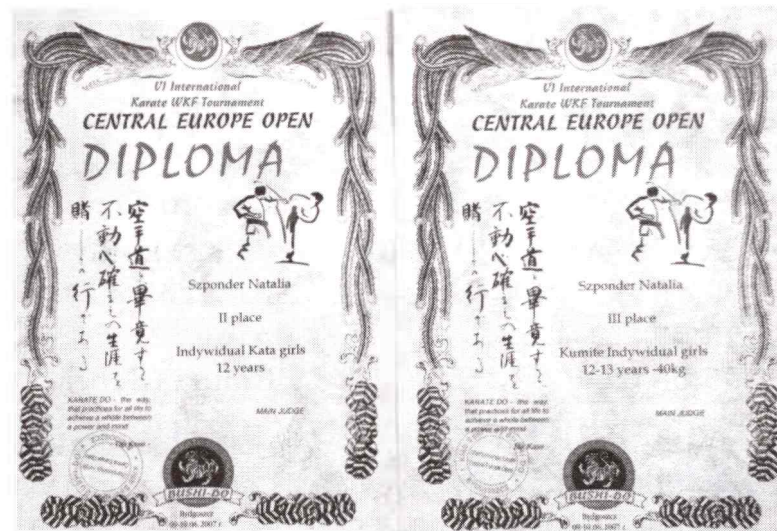 VI International
Karate WKF Tournament
CENTRAL EUROPE OPEN
DIPLOMA
空手道 畢竟
不動心確 の生涯
賭 行
Szponder Natalia
II place
Indywidual Kata girls
12 years
KARATE DO - the way,
that practices for all life to
achieve a whole between
a power and mind
MAIN JUDGE
BUSHI-DO
Bydgoszcz
09-10.06. 2007 r.
VI International
Karate WKF Tournament
CENTRAL EUROPE OPEN
DIPLOMA
空手道 畢竟
不動心確 の生涯
賭 行
Szponder Natalia
III place
Kumite Indywidual girls
12-13 years -40kg
KARATE DO - the way,
that practices for all life to
achieve a whole between
a power and mind
MAIN JUDGE
BUSHI-DO
Bydgoszcz
09-10.06. 2007 r.